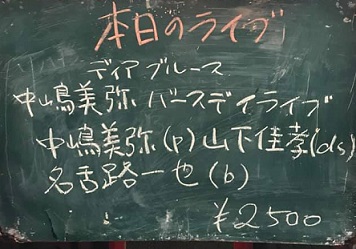 本日のライブ
ディア ブルース
中嶋美弥 バースデイライブ
中嶋美弥(p)山下佳孝(ds)
名舌路一也(b)
¥2500